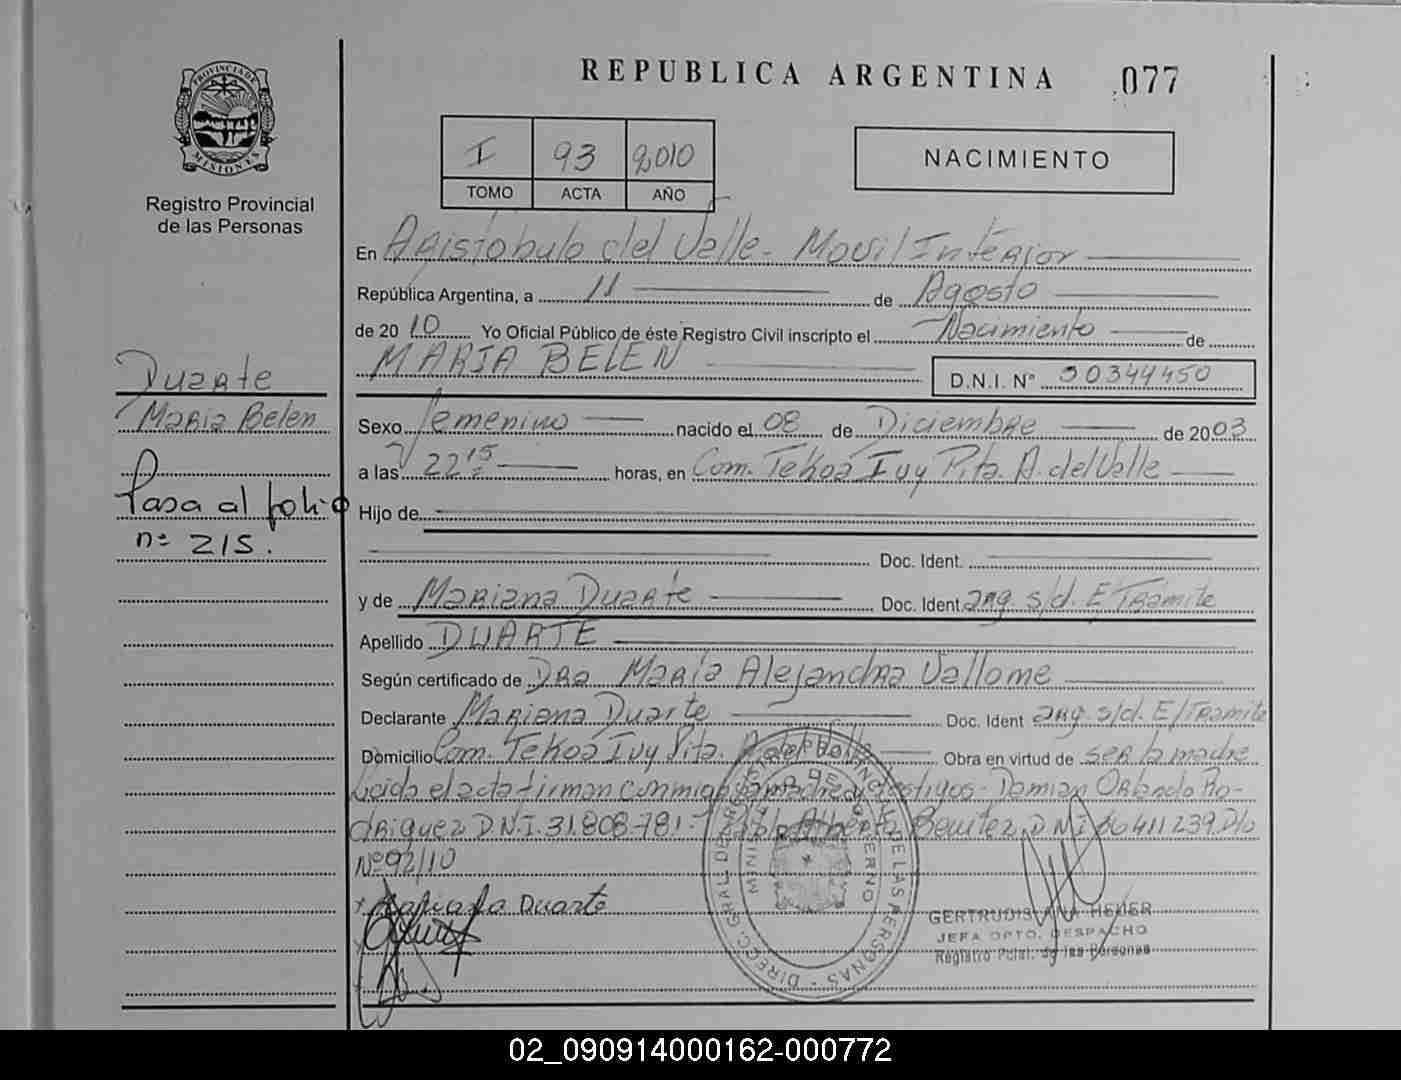 REPUBLICA ARGENTINA
077
PROVINCIA DE MISIONES
Registro Provincial
de las Personas
I 93 2010
TOMO ACTA AÑO
NACIMIENTO
En Aristobulo del Valle - Movil Interior
República Argentina, a 11 de Agosto
de 2010 Yo Oficial Público de éste Registro Civil inscripto el Nacimiento de
MARIA BELEN D.N.I. Nº 50344450
Duarte
Maria Belen
Pasa al folio
nº 215.
Sexo femenino nacido el 08 de Diciembre de 2003
a las 22 15 horas, en Com. Tekoá Ivy Pita. A. del Valle
Hijo de
Doc. Ident.
y de Mariana Duarte Doc. Ident. arg. s/d. E/Tramite
Apellido DUARTE
Según certificado de Dra Maria Alejandra Vallome
Declarante Mariana Duarte Doc. Ident arg. s/d. E/Tramite
Domicilio Com. Tekoa Ivy Pita. A. del Valle Obra en virtud de ser la madre
Leida el acta firman conmigo la madre y testigos - Damian Orlando Ro-
driguez D.N.I. 31.808.781 - Alberto Benitez D.N.I 36411239. D/o
Nº 92/10
Mariana Duarte
DIREC. GRAL DE REGISTRO PROVINCIAL DE LAS PERSONAS
MINISTERIO DE GOBIERNO
GERTRUDIS ANA HEDER
JEFA DPTO. DESPACHO
Registro Pcial. de las Personas
02_090914000162-000772